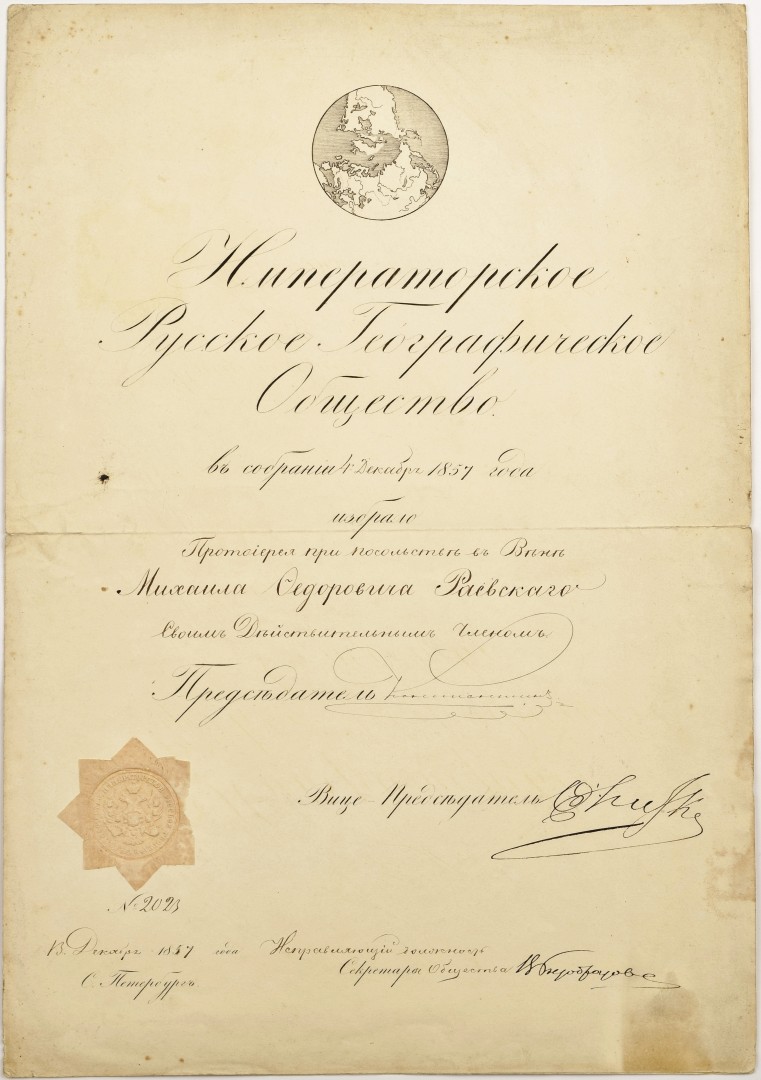 Императорское
Русское Географическое
Общество.
въ собраніи 4 Декабря 1857 года
избрало
Протоіерея при посольствѣ въ Вѣнѣ
Михаила Ѳедоровича Раевскаго
Своимъ Дѣйствительнымъ Членомъ
Предсѣдатель Константинъ
Вице-Предсѣдатель
№ 2023
13. Декабря 1857 года
С. Петербургъ
Исправляющій должность
Секретаря Общества